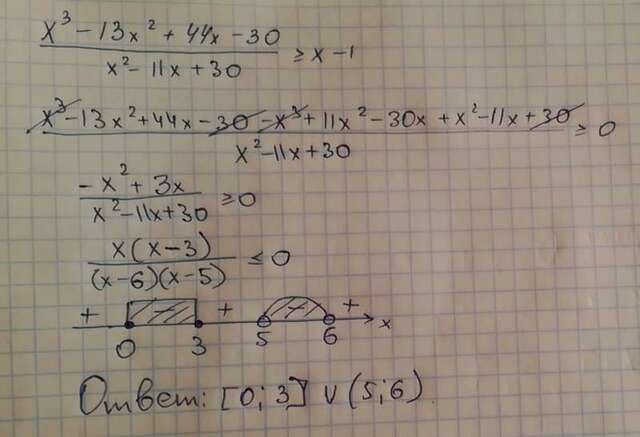 x³ - 13x² + 44x - 30 / x² - 11x + 30 ≥ x - 1
x³ - 13x² + 44x - 30 - x³ + 11x² - 30x + x² - 11x + 30 / x² - 11x + 30 ≥ 0
-x² + 3x / x² - 11x + 30 ≥ 0
x(x-3) / (x-6)(x-5) ≤ 0
+ - + - + x
0 3 5 6
Ответ: [0; 3] ∪ (5; 6)